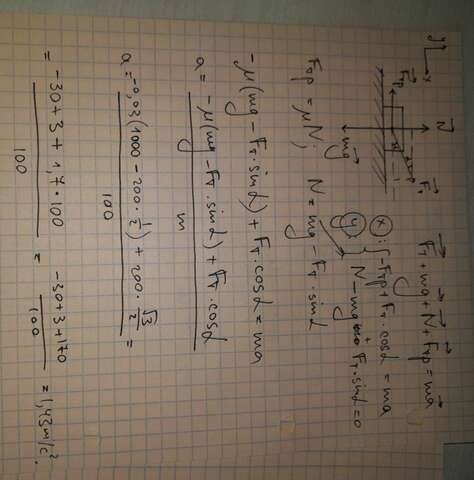 y
x
N
Fтр
Fт
α
mg
Fт + mg + N + Fтр = ma
x: { -Fтр + Fт · cosα = ma
y: { N - mg + Fт · sinα = 0
Fтр = μN; N = mg - Fт · sinα
-μ(mg - Fт · sinα) + Fт · cosα = ma
a = -μ(mg - Fт · sinα) + Fт · cosα / m
a = -0,03(1000 - 200 · 1/2) + 200 · √3/2 / 100 =
= -30 + 3 + 1,7 · 100 / 100 = -30 + 3 + 170 / 100 = 1,43 м/с².